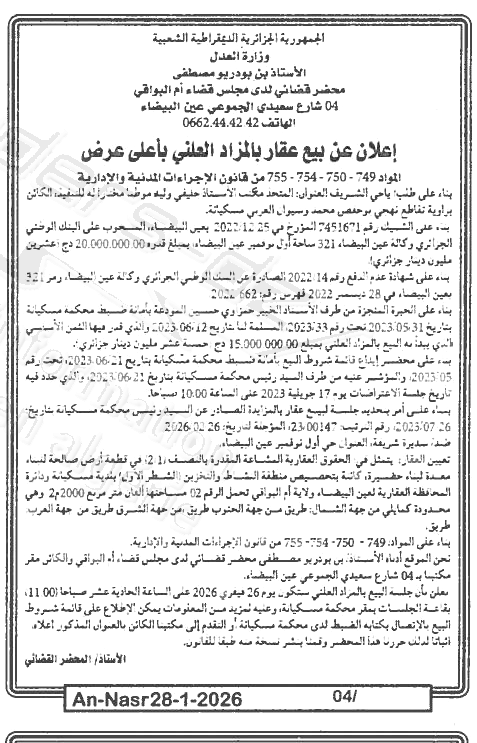 الجمهورية الجزائرية الديمقراطية الشعبية
وزارة العدل
الأستاذ بن بودريو مصطفى
محضر قضائي لدى مجلس قضاء أم البواقي
04 شارع سعيدي الجموعي عين البيضاء
الهاتف 42 42.44.0662
إعلان عن بيع عقار بالمزاد العلني بأعلى عرض
المواد 749 - 750 - 754 - 755 من قانون الإجراءات المدنية والإدارية
بناء على طلب: ياحي الشريف العنوان: المتخذ مكتب الأستاذ حنيفي وليه موطنا مختارا له للتنفيذ الكائن
بزاوية تقاطع نهجي بوحفص محمد وسيوال العربي مسكيانة.
بناء على الشيك رقم 7451671 المؤرخ في 2022/12/25 بعين البيضاء، المسحوب على البنك الوطني
الجزائري وكالة عين البيضاء 321 ساحة أول نوفمبر عين البيضاء، بمبلغ قدره 20.000.000.00 دج (عشرين
مليون دينار جزائري).
بناء على شهادة عدم الدفع رقم 2022/14 الصادرة عن البنك الوطني الجزائري وكالة عين البيضاء رمز 321
بعين البيضاء في 28 ديسمبر 2022 فهرس رقم: 2022/662
بناء على الخبرة المنجزة من طرف الأستاذ الخبير حمزاوي حسين المودعة بأمانة ضبط محكمة مسكيانة
بتاريخ 2023/05/31 تحت رقم 2023/33، المسلمة لنا بتاريخ 2023/06/12 والذي قدر فيها الثمن الأساسي
الذي يبدأ به البيع بالمزاد العلني بمبلغ 15.000.000.00 دج (خمسة عشر مليون دينار جزائري).
بناء على محضر إيداع قائمة شروط البيع بأمانة ضبط محكمة مسكيانة بتاريخ 2023/06/21، تحت رقم
2023/05، والمؤشر عنيه من طرف السيد رئيس محكمة مسكيانة بتاريخ 2023/06/21، والذي حدد فيه
تاريخ جلسة الاعتراضات يوم 17 جويلية 2023 على الساعة 10:00 صباحا.
بناء على أمر بتحديد جلسة لبيع عقار بالمزايدة الصادر عن السيد رئيس محكمة مسكيانة بتاريخ:
2023/07/26، رقم الترتيب: 23/00147، المؤجلة لتاريخ: 2026/02/26
ضد: سديرة شريفة، العنوان حي أول نوفمبر عين البيضاء.
تعيين العقار: يتمثل في الحقوق العقارية المشاعة المقدرة بالنصف (2/1)، في قطعة أرض صالحة لبناء
معدة لبناء حضيرة، كائنة بتخصيص منطقة النشاط والتخزين (الشطر الأول) بلدية مسكيانة ودائرة
المحافظة العقارية لعين البيضاء ولاية أم البواقي تحمل الرقم 02 مساحتها ألفان متر مربع 2000م2 وهي
محدودة كمايلي من جهة الشمال: طريق من جهة الجنوب طريق، من جهة الشرق طريق من جهة الغرب
طريق.
بناء على المواد: 749 - 750 - 754 - 755 من قانون الإجراءات المدنية والإدارية.
نحن الموقع أدناه الأستاذ/ بن بودريو مصطفى محضر قضائي لدى مجلس قضاء أم البواقي والكائن مقر
مكتبنا بـ 04 شارع سعيدي الجموعي عين البيضاء.
نعلن بأن جلسة البيع بالمزاد العلني ستكون يوم 26 فيفري 2026 على الساعة الحادية عشر صباحا (11:00)
بقاعة الجلسات بمقر محكمة مسكيانة، وعنيه لمزيد من المعلومات يمكن الإطلاع على قائمة شروط
البيع بالإتصال بكتابة الضبط لدى محكمة مسكيانة أو التقدم إلى مكتبنا الكائن بالعنوان المذكور أعلاه.
اثباتا لذلك حررنا هذا المحضر وقمنا بنشر نسخة منه طبقا للقانون.
الأستاذ/ المحضر القضائي
An-Nasr 28-1-2026
04/